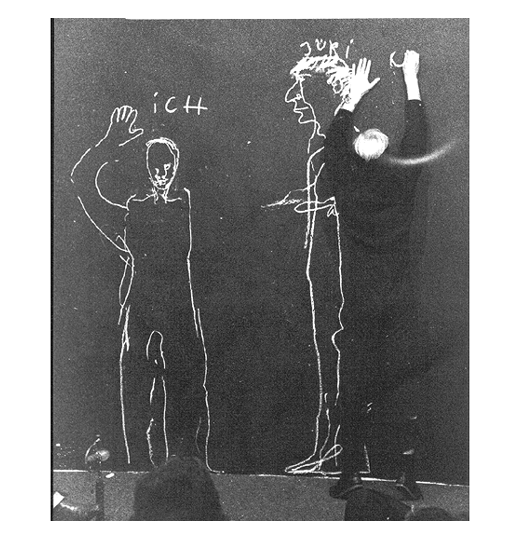 iCH
JÜRi